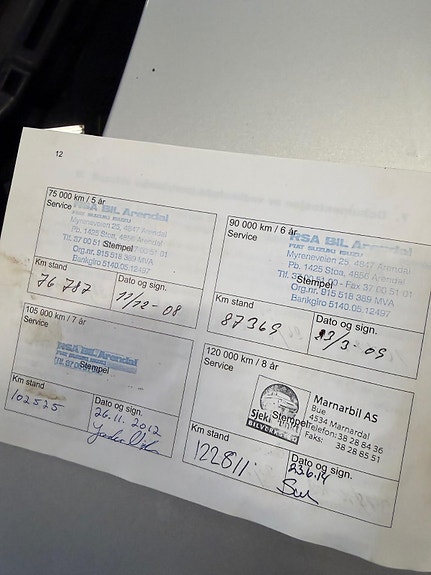 12
75 000 km / 5 år
Service
RSA BIL Arendal
FIAT SUZUKI SUBARU
Myreneveien 25, 4847 Arendal
Pb. 1425 Stoa, 4856 Arendal
Tlf. 37 00 51
Stempel
Org.nr. 915 518 369 MVA
Bankgiro 5140.05.12497
Km stand
Dato og sign.
76 787
11/12-08
90 000 km / 6 år
Service
RSA BIL Arendal
FIAT SUZUKI
Myreneveien 25, 4847 Arendal
Pb. 1425 Stoa, 4856 Arendal
Tlf. 37 00 51 00 - Fax 37 00 51 01
Stempel
Org.nr. 915 518 369 MVA
Bankgiro 5140.05.12497
Km stand
Dato og sign.
87369
23/3-09
105 000 km / 7 år
Service
RSA BIL Arendal
Stempel
Km stand
Dato og sign.
102525
26.11.2012
120 000 km / 8 år
Service
Marnarbil AS
Bue
4534 Marnardal
Stempel
Telefon: 38 28 84 36
Faks: 38 28 85 51
Sjekk
BILVERKSTED
Km stand
Dato og sign.
122811
23.6.14